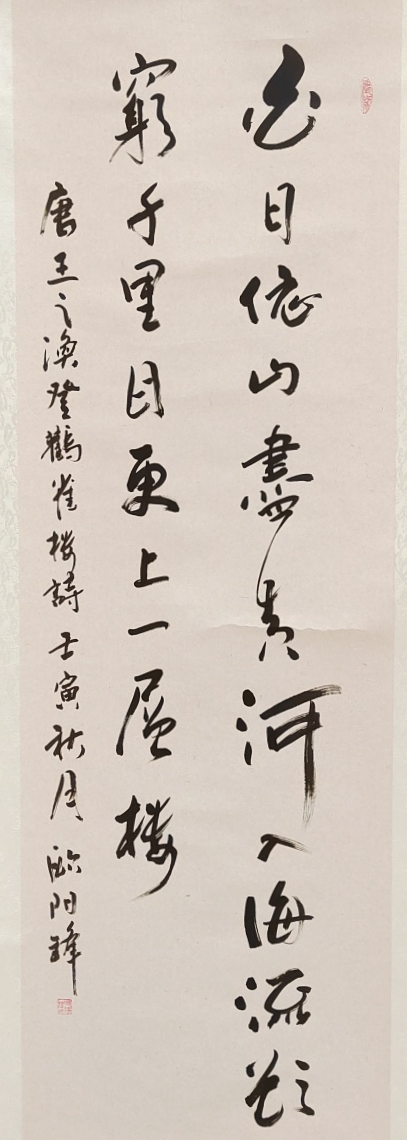 白日依山盡黄河入海流欲
窮千里目更上一層楼
唐王之渙登鸛雀楼詩 壬寅秋月 歐阳鋒